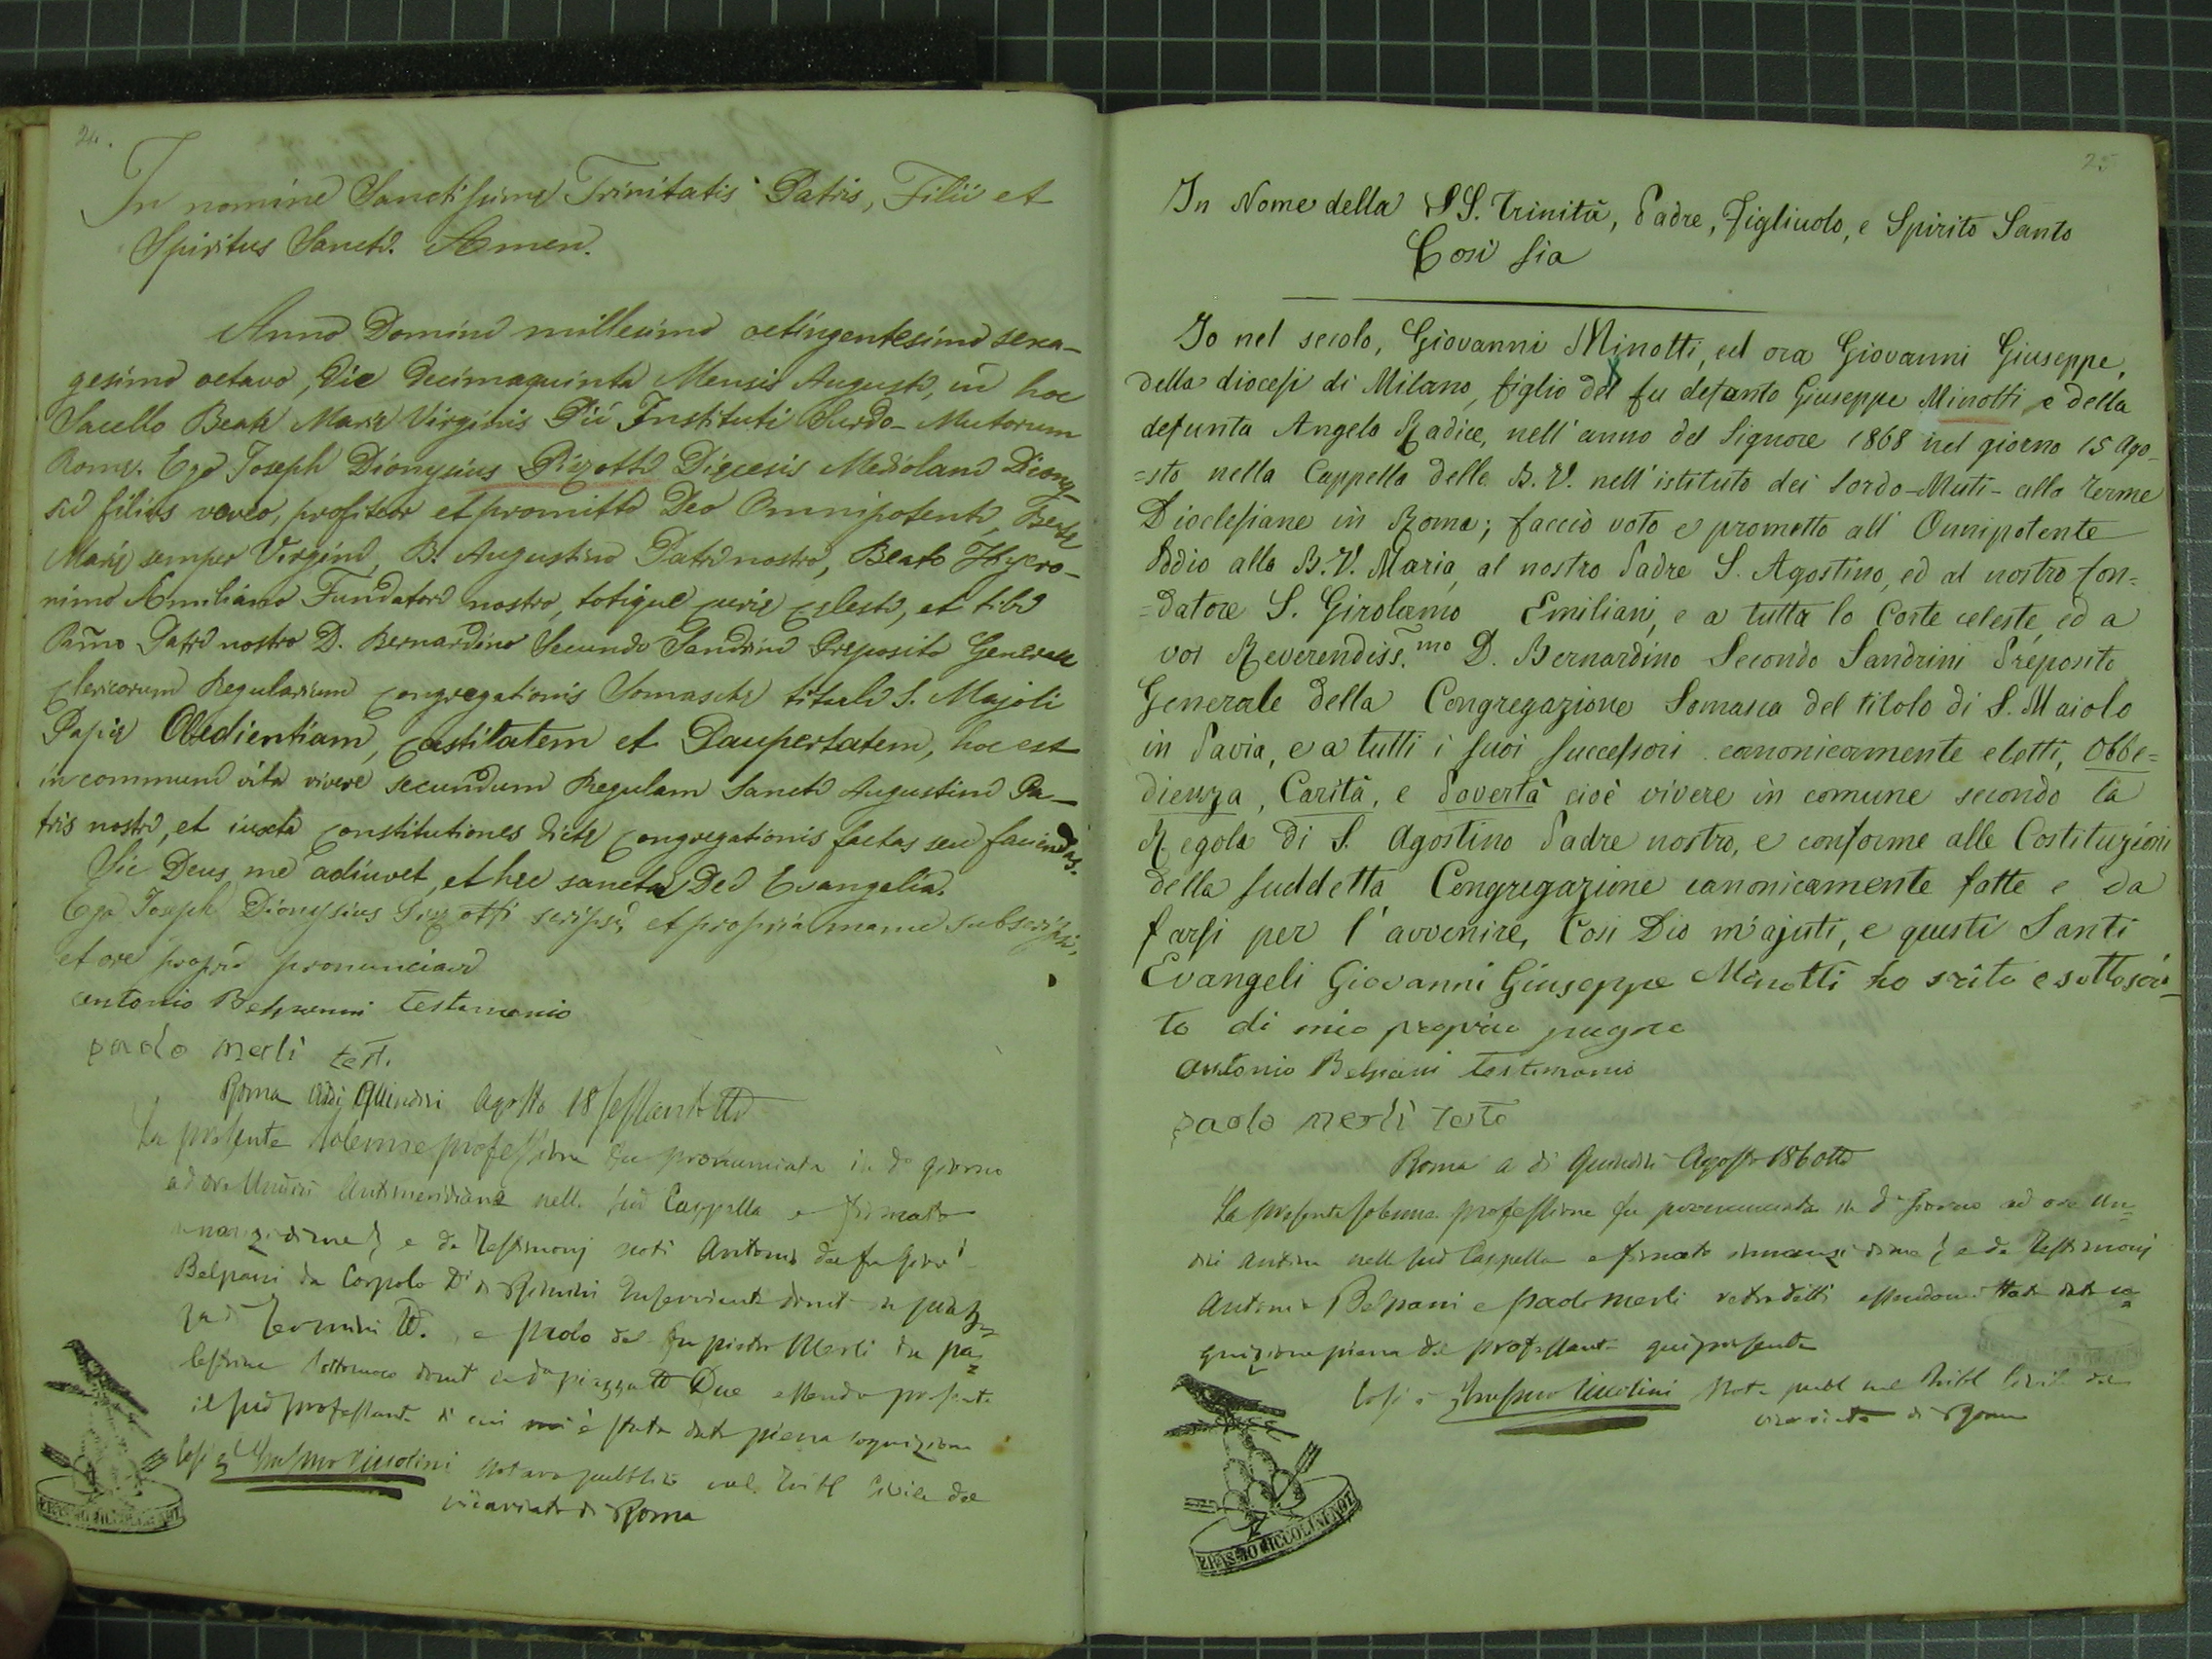 24.
In nomine Sanctissime Trinitatis Patris, Filii et
Spiritus Sancti. Amen.
Anno Domini millesimo octingentesimo sexa-
gesimo octavo, Die Decimaquinta Mensis Augusti, in hoc
Sacello Beate Marie Virginis Pii Instituti Surdo-Mutorum
Rome. Ego Joseph Dionysius Pizzotti Diecesis Mediolani Diony-
sii filius voveo, profiteor et promitto Deo Omnipotenti, Beate
Marie semper Virgini, B. Augustino Patri nostro, Beato Hyero-
nimo Emiliano Fundatori nostro, totique curie celesti, et tibi
Rm̃o Patri nostro D. Bernardino Secundo Sandrini Preposito Generali
Clericorum Regularium Congregationis Somasche tituli S. Majoli
Papie Obedientiam, Castitatem et Paupertatem, hoc est
in communi vita vivere secundum Regulam Sancti Augustini Pa-
tris nostri, et iuxta Constitutiones dicte Congregationis factas seu faciendas.
Sic Deus me adiuvet, et hec sancta Dei Evangelia.
Ego Joseph Dionysius Pizzotti scripsi, et propria manu subscripsi,
et ore proprio pronunciavi
antonio Belpanni testimonio
paolo merli test.
Roma adi Quindici Agosto 18sessantotto
La presente solenne professione fu pronunciata in do giorno
ad ore Undici Antimeridiane nella sud Cappella e firmata
innanzi di me, e da Testimonj noti Antonio del fu
Belpani da Corpolo Di di Rimini Inserviente domt in piaz
za di Termini e Paolo del fu pietro Merli da pa=
lestrina domt in da piazza Due essendo presente
il sud professante di cui mi è stata data piena cognizione
Così è Erasmo Ciccolini Notaro pubblico nel Tribl Civile del
vicariato di Roma
ERASMO CICCOLINI NOT
25
In Nome della SS. Trinità, Padre, Figliuolo, e Spirito Santo
Così sia
Io nel secolo, Giovanni Minotti, ed ora Giovanni Giuseppe,
della diocesi di Milano, figlio del fu defunto Giuseppe Minotti e della
defunta Angela Radice, nell'anno del Signore 1868 nel giorno 15 Ago-
=sto nella Cappella della B. V. nell'istituto dei Sordo-Muti- alla Terme
Dioclesiane in Roma; faccio voto e prometto all' Onnipotente
Iddio alla B. V. Maria, al nostro Padre S. Agostino, ed al nostro fon=
=datore S. Girolamo Emiliani, e a tutta la Corte celeste, ed a
voi Reverendiss.mo D. Bernardino Secondo Sandrini Préposito
Generale della Congregazione Somasca del titolo di S. Maiolo
in Pavia, e a tutti i suoi successori canonicamente eletti, Obbe=
dienza, Carità, e Povertà cioè vivere in comune secondo la
Regola di S. Agostino Padre nostro, e conforme alle Costituzioni
della suddetta Congregazione canonicamente fatte e da
farsi per l'avvenire, Così Dio m'ajuti, e questi Santi
Evangeli Giovanni Giuseppe Minotti ho scrito e sottoscri-
to di mio proprio pugno
antonio Belpani testimonio
paolo merli teste
Roma a di Quindici Agosto 186otto
La presente solenne professione fu pronunciata in do Giorno ad ore Un=
dici Antim nella sud Cappella e firmata innanzi di me, e da Testimonj
Antonio Belpani e Paolo Merli retrodetti essendomi stata data co=
gnizione piena del professante qui presente
Così è Erasmo Ciccolini Not. pubb nel Tribl Civile del
vicariato di Roma
ERASMO CICCOLINI NOT